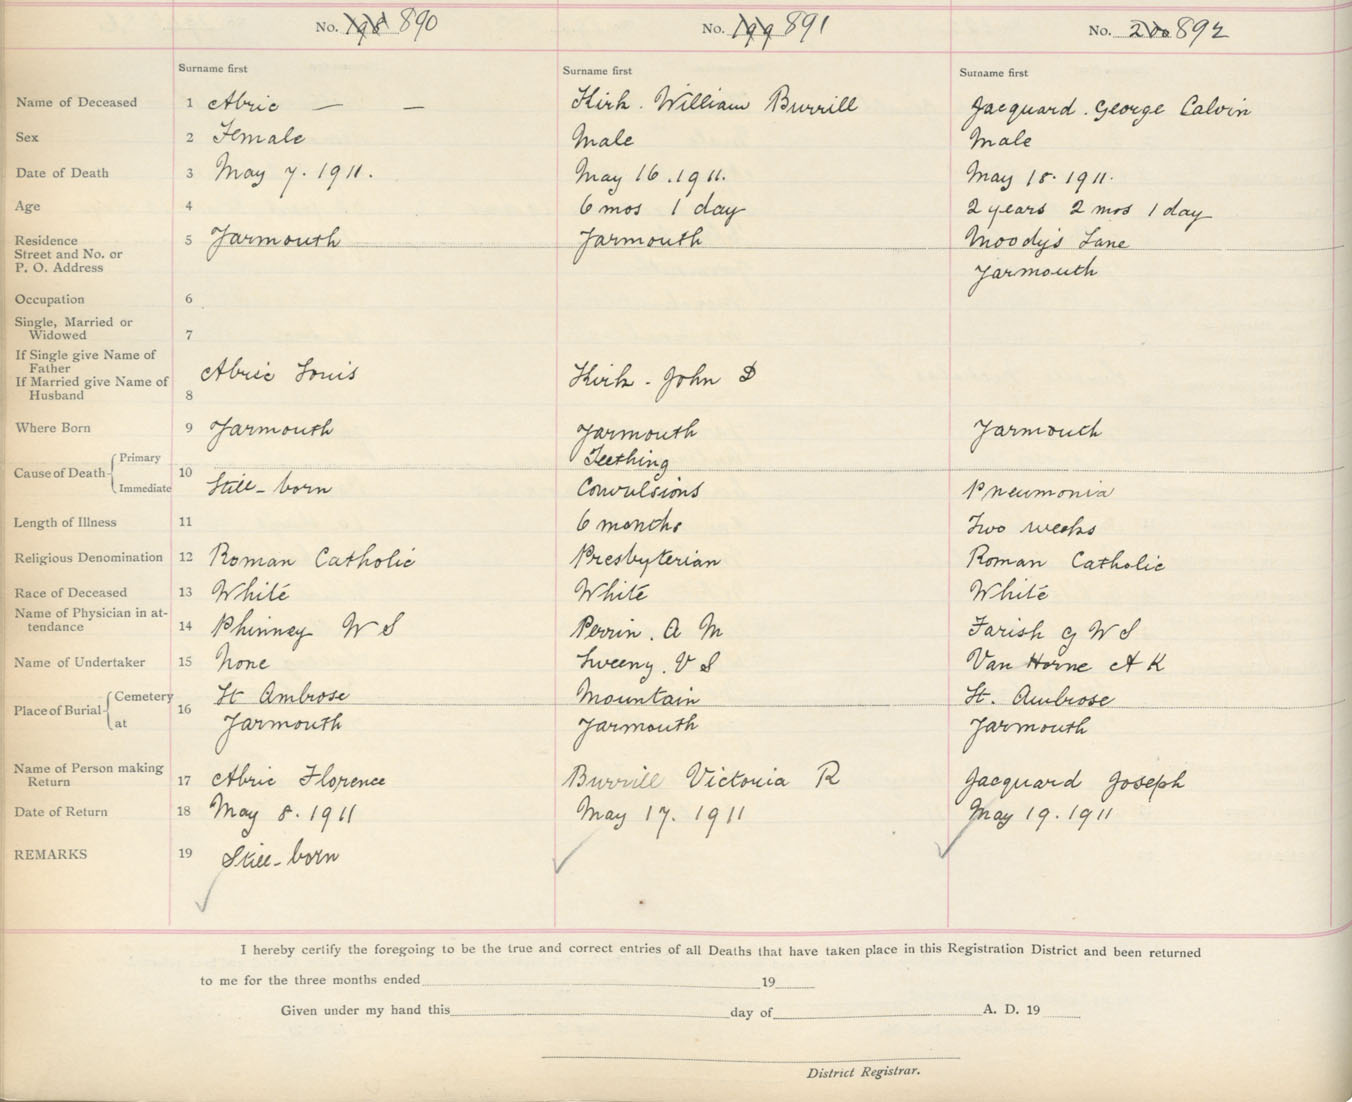 No. 198 890 No. 199 891 No. 200 892
Surname first Surname first Surname first
Name of Deceased 1 Abric — — Kirk. William Burrill Jacquard. George Calvin
Sex 2 Female Male Male
Date of Death 3 May 7. 1911. May 16. 1911. May 18. 1911.
Age 4 6 mos 1 day 2 years 2 mos 1 day
Residence 5 Yarmouth Yarmouth Moody's Lane
Street and No. or
P. O. Address Yarmouth
Occupation 6
Single, Married or
Widowed 7
If Single give Name of
Father Abric Louis Kirk - John D
If Married give Name of
Husband 8
Where Born 9 Yarmouth Yarmouth Yarmouth
Cause of Death Primary 10 Teething
Immediate Still-born Convulsions Pneumonia
Length of Illness 11 6 months Two weeks
Religious Denomination 12 Roman Catholic Presbyterian Roman Catholic
Race of Deceased 13 White White White
Name of Physician in at-
tendance 14 Phinney W S Perrin. A M Farish G W S
Name of Undertaker 15 None Sweeny. V S Van Horne A K
Place of Burial Cemetery 16 St Ambrose Mountain St. Ambrose
at Yarmouth Yarmouth Yarmouth
Name of Person making
Return 17 Abric Florence Burrill Victoria R Jacquard Joseph
Date of Return 18 May 8. 1911 May 17. 1911 May 19. 1911
REMARKS 19 Still-born
I hereby certify the foregoing to be the true and correct entries of all Deaths that have taken place in this Registration District and been returned
to me for the three months ended 19
Given under my hand this day of A. D. 19
District Registrar.